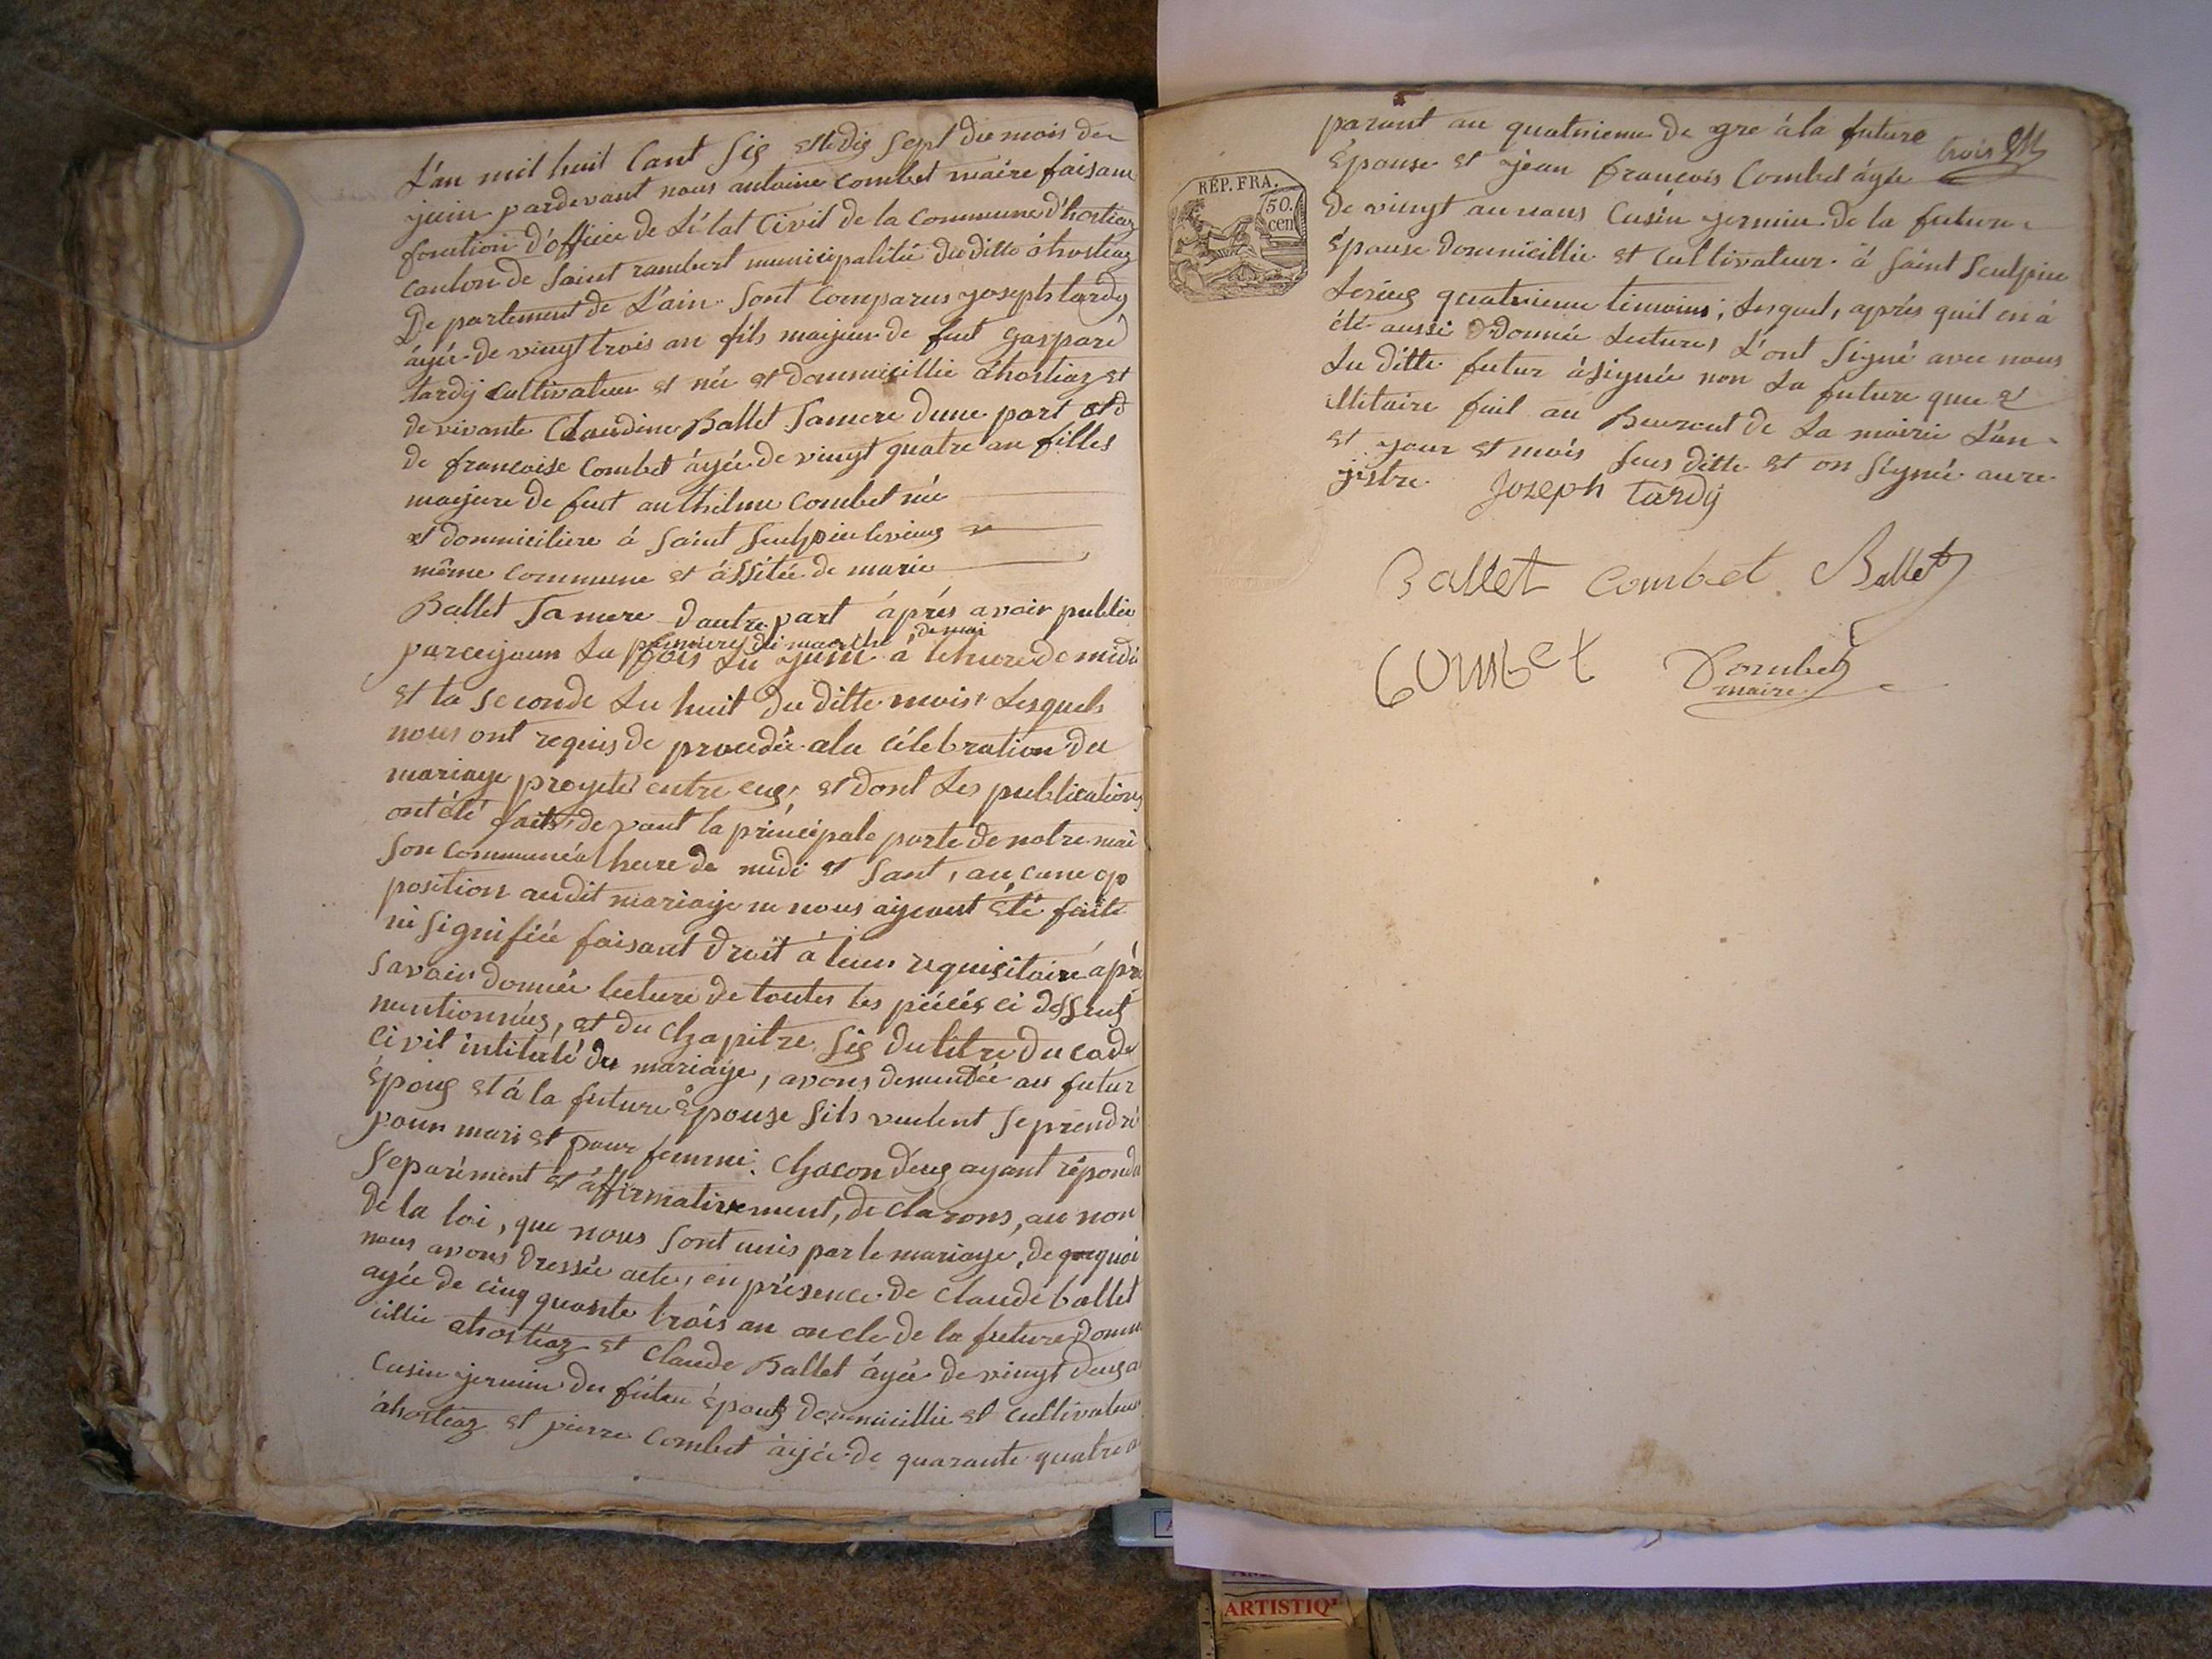 L'an mil huit Cant Sig et le dig Sept du mois de
juin pardevant nous antoine Combet maire faisant
fonction d'officie de L'état Civil de la Commune d'hostiaz
canton de Saint rambert municipalitée du ditte ahostiaz
De partement de L'ain Sont Comparus joseph tardy
âgée de vingt trois an fils majeur de fut gaspard
tardy Cultivateur et née et dommicillie ahostiaz et
de vivante Claudine Ballet Samere dune part et d
de francoise Combet âgée de vingt quatre an filles
majure de fut anthelme Combet née
et dommiciliere á Saint Seulpice levieug
même Commune et âssitée de marie
Ballet Samere dautre part áprés avoir publie
premiere di manche de mai
parcejour La fois Le juin a lehure de midi
et la Seconde Le huit du ditte mois Lesquels
nous ont requis de procedée ala célebration du
mariage proyeté entre eug, et dont Les publications
ont été faits, de vant la principale porte de notre mai
Son communéa lheure de midi et Sant, au cune op
position audit mariaije ne nous aijeant été faite
ni Signifiée faisant droit á leur requisitoire áprè
Savoir donnée lecture de toutes les piécés ci dessus
mentionnées, et du Chapitre Sig du titre du code
Civil intitulé du mariage, avons demendée au futur
Époug et á la future Épouse Sils veulent Se prendre
pour mari et pour femme. Chacon d'eug ayant répondu
Separément et affirmativement, de clarons, au non
de la loi, que nous Sont unis par le mariage, de quoi
nous avons dressée acte, en présence de Claude ballet
agée de cinq quante trois an oncle de la future Domm
icillie ahostiaz et Claude Ballet âgée de vingt deug a
Cusin jermin du futur épouz dommicillie et Cultivateur
áhostiaz et pierre Combet âgée de quarante quatre a
parant au quatrieme de gre á la future
trois
Épouse et jean francois Combet âgée
REP. FRA.
50.
cen
de vingt an nous Cusin jermin de la future
Épouse dommicillie et Cultivateur á Saint Seulpice
Levieug quatrieme temoins; Lesquel, aprés quil en á
été aussi donnée Lecture, L'ont Signé avec nous
Le ditte futur á Signée non La future que
illitaire fait au Beureaut de La mairie L'an
et jour et mois Sus ditte et on Signée aure
jistre Joseph tardy
Ballet Combet Ballet
Combet Combet
maire
ARTISTIQ